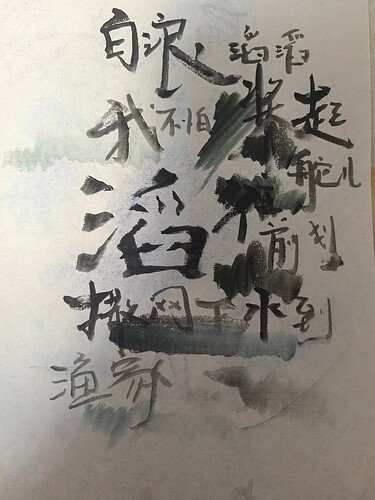 白浪滔滔
我不怕起
舵儿
滔
前划
撒网下水到
渔家